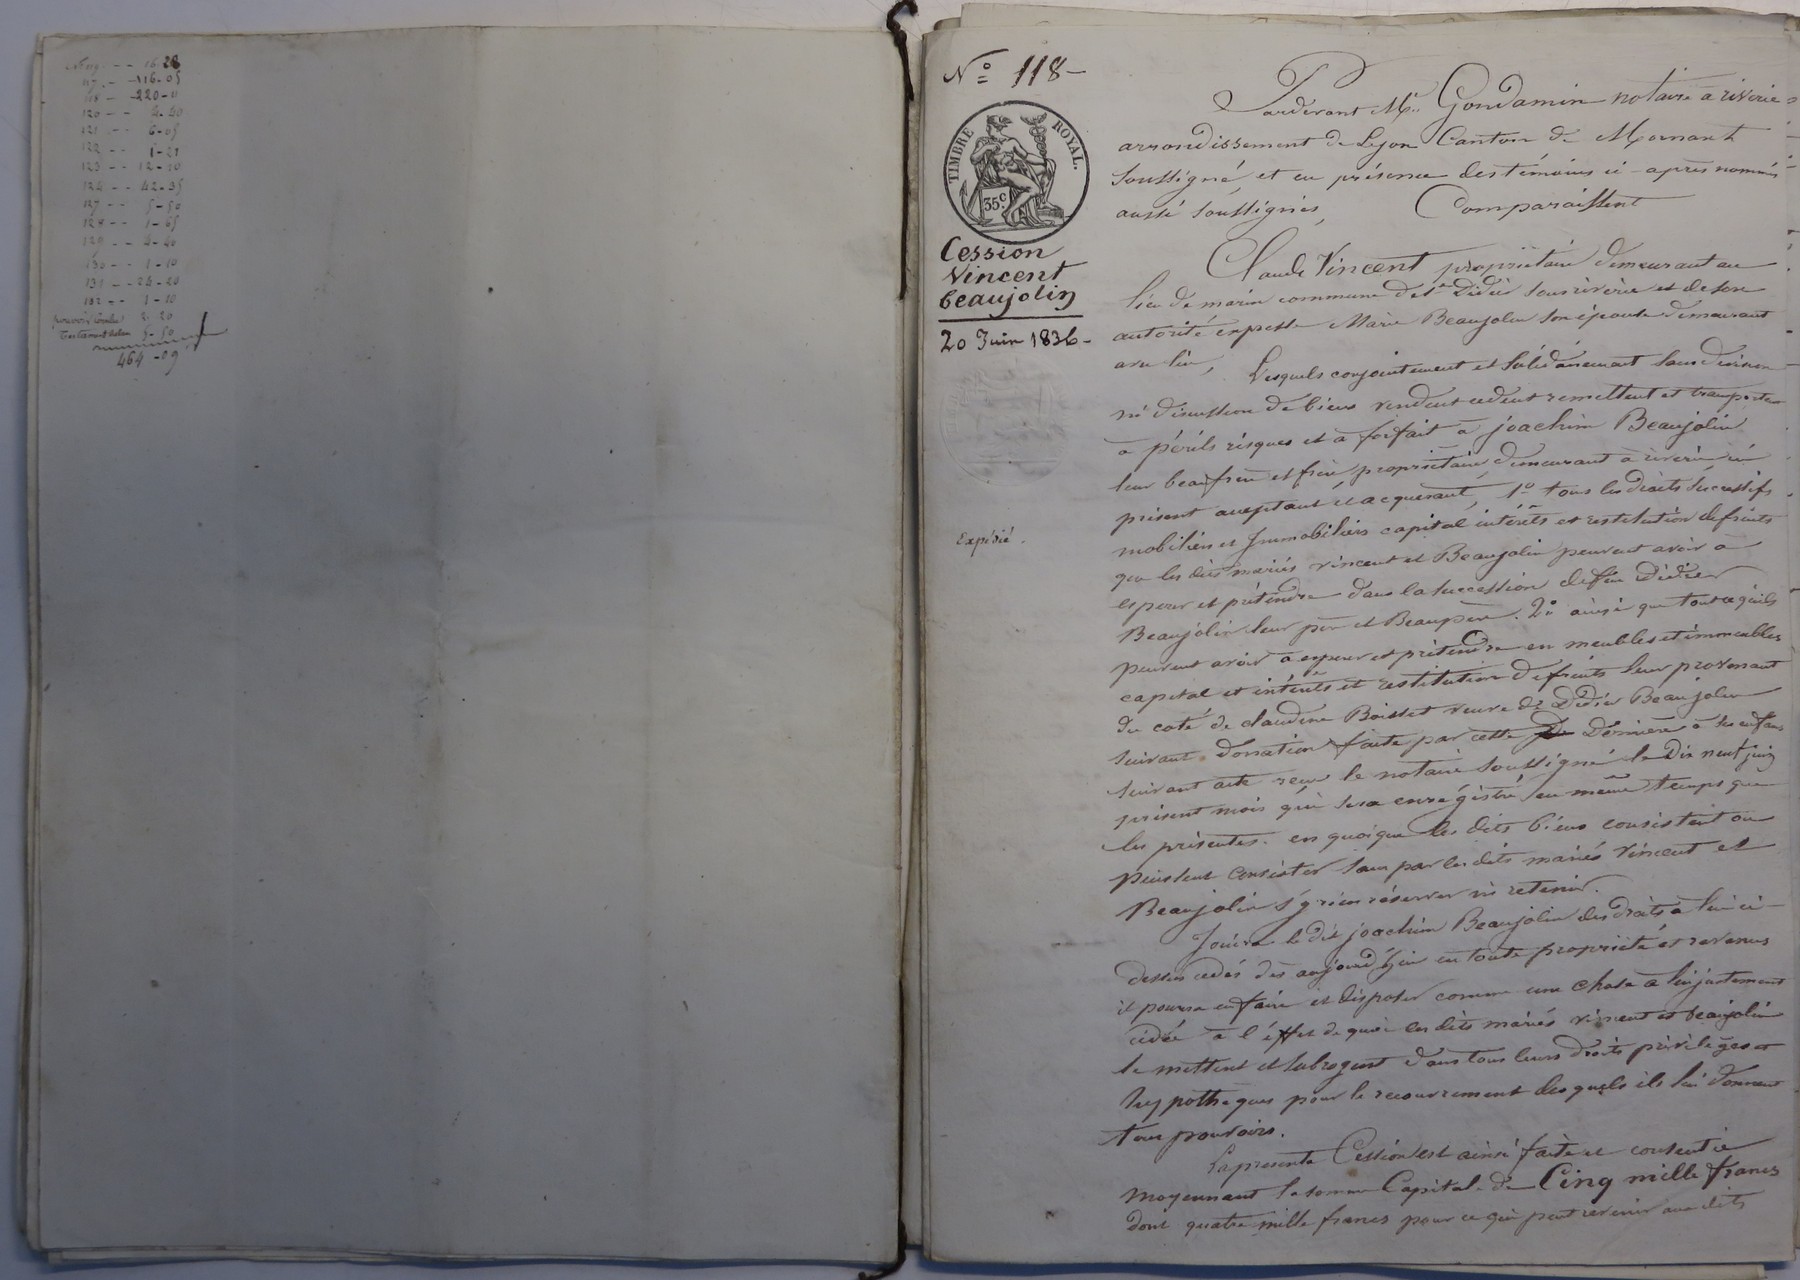 117 - - 116-05
118 - 220-0
120 - - 4-40
121 - - 6-05
122 - - 1-21
123 - - 12-10
124 - - 42-35
127 - - 5-50
128 - - 1-65
129 - - 4-40
130 - - 1-10
131 - - 24-20
132 - - 1-10
2-20
5-50
464-09
N° 118-
TIMBRE ROYAL.
35c
Cession
Vincent
beaujolin
20 Juin 1836-
Expédié.
Pardevant Me. Gondamin notaire à riverie
arrondissement de Lyon Canton de Mornant
soussigné et en présence des témoins ci-après nommés
aussi soussignés, Comparaissent
Claude Vincent propriétaire demeurant au
lieu de marin commune de st Didier sous riverie et de son
autorité expresse Marie Beaujolin son épouse demeurant
au lieu, Lesquels conjointement et solidairement sans division
ni discussion de biens vendent cedent remettent et transportent
à périls risques et à forfait à joachim Beaujolin
leur beaufrère et frère propriétaire demeurant à riverie ici
présent acceptant et acquerant, 1° tous les droits successifs
mobiliers et Immobiliers capital intérêts et restitution de fruits
que les dits mariés vincent et Beaujolin peuvent avoir à
esperer et prétendre dans la succession de feu Didier
Beaujolin leur père et Beaupère. 2° ainsi que tout ce qu'ils
peuvent avoir à esperer et prétendre en meubles et immeubles
capital et intérêts et restitution de fruits leur provenant
du coté de claudine Boisset veuve de Didier Beaujolin
suivant donation faite par cette dernière à ses enfans
suivant acte reçu le notaire soussigné le dix neuf juin
présent mois qui sera enregistré en même temps que
les présentes. en quoi que les dits biens consistent ou
puissent consister sans par les dits mariés vincent et
Beaujolin s'y rien réserver ni retenir.
Jouira le dit joachim Beaujolin des droits à lui ci-
dessus cedés dès aujourd'hui en toute propriété et revenus
il pourra en faire et disposer comme une chose à lui justement
cédée à l'éffet de quoi les dits mariés vincent et beaujolin
le mettent et subrogent dans tous leurs droits privilèges et
hypothèques pour le recouvrement desquels ils lui donnent
tous pouvoirs.
La presente Cession est ainsi faite et consentie
moyennant la somme Capital de Cinq mille francs
dont quatre mille francs pour ce qui peut revenir aux dits